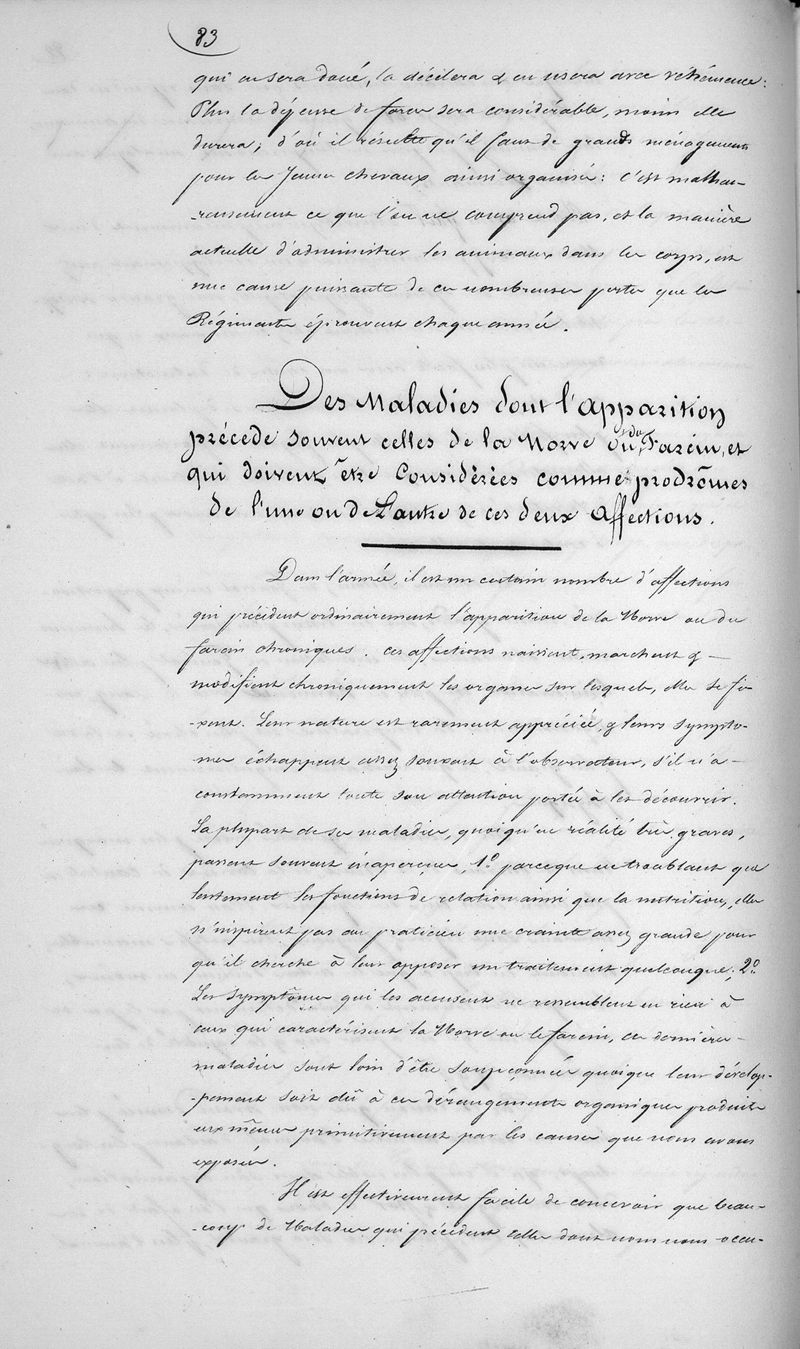 83
qui en sera doué, la décèlera & en usera avec véhémence:
Plus la dépense de force sera considérable, moins elle
durera; d'où il résulte qu'il faut de grands ménagements
pour les Jeunes chevaux ainsi organisés: c'est malheu-
-reusement ce que l'on ne comprend pas, et la manière
actuelle d'administrer les animaux dans les corps, est
une cause puissante de ces nombreuses pertes que les
Régiments éprouvent chaque année.
Des Maladies dont l'apparition
précède souvent celles de la Morve ou du Farcin, et
qui doivent être Considérées comme prodrômes
de l'une ou de L'autre de ces deux Affections.
Dans l'armée, il est un certain nombre d'affections
qui précèdent ordinairement l'apparition de la Morve ou du
farcin chroniques. ces affections naissent, marchent &
modifient chroniquement les organes sur lesquels, elles se fi-
-xent. Leur nature est rarement appréciée, & leurs sympto-
mes échappent assez souvent à l'observateur, s'il n'a
constamment toute son attention portée à les découvrir.
La plupart de ses maladies, quoiqu'en réalité très graves,
passent souvent inaperçues, 1º. parceque ne troublant que
lentement les fonctions de relation ainsi que la nutrition, elles
n'inspirent pas au praticien une crainte assez grande pour
qu'il cherche à leur opposer un traitement quelconque; 2º.
Les Symptômes qui les accusent ne ressemblent en rien à
ceux qui caractérisent la Morve ou le farcin, ces dernières
maladies sont loin d'être soupçonnées quoique leur dévelop-
-pement soit dû à ces dérangements organiques produits
eux mêmes primitivement par les causes que nous avons
exposées.
Il est effectivement facile de concevoir que beau-
-coup de Maladies qui précèdent celles dont nous nous occu-